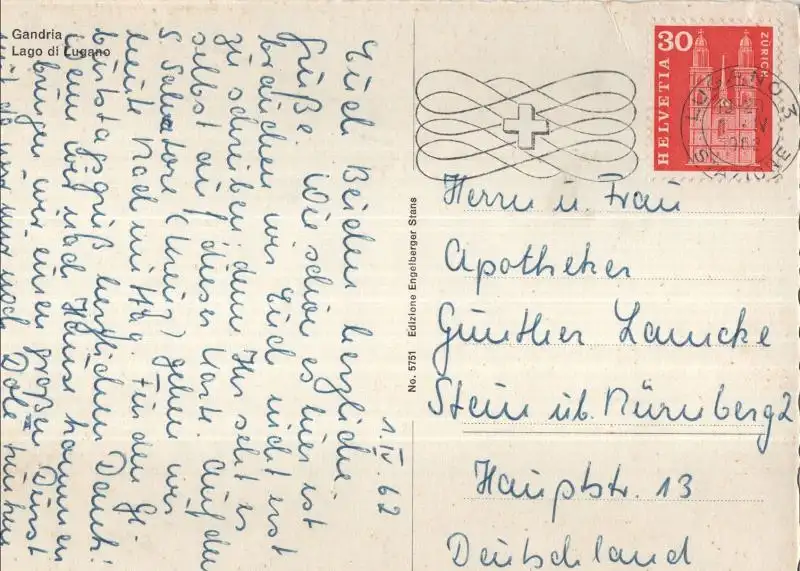 Gandria
Lago di Lugano
1. IV. 62
Euch Beiden herzliche
Grüße. Wie schön es hier ist
brauchen wir Euch nicht erst
zu schreiben, denn Ihr seht es
selbst auf dieser Karte. Auf den
S. Salvatore (Kreuz) gehen wir
heute Nachmittag. Für den Ge-
burtstagsgruß herzlichen Dank!
Wenn wir nach Haus kommen
bringen wir einen großen Durst
mit, da wir nur noch Dole trinken
No. 5751 Edizione Engelberger Stans
HELVETIA
30
ZÜRICH
LUGANO 3
STAZIONE
Herrn u. Frau
Apotheker
Günther Lamcke
Stein üb. Nürnberg 2
Hauptstr. 13
Deutschland